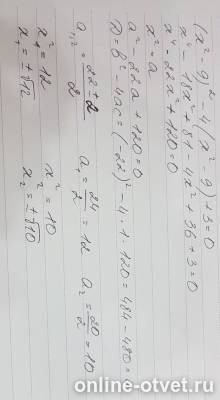 (x²-9)²-4(x²-9)+3=0
x⁴-18x²+81-4x²+36+3=0
x⁴-22x²+120=0
x²=a
a²-22a+120=0
D=b²-4ac=(-22)²-4·1·120=484-480=
a₁,₂=22±2/2 a₁=24/2=12 a₂=20/2=10
x²=12 x²=10
x₁=±√12 x₂=±√10
online-otvet.ru